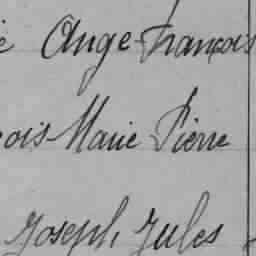 e Ange-François
çois-Marie Pierre
Joseph Jules